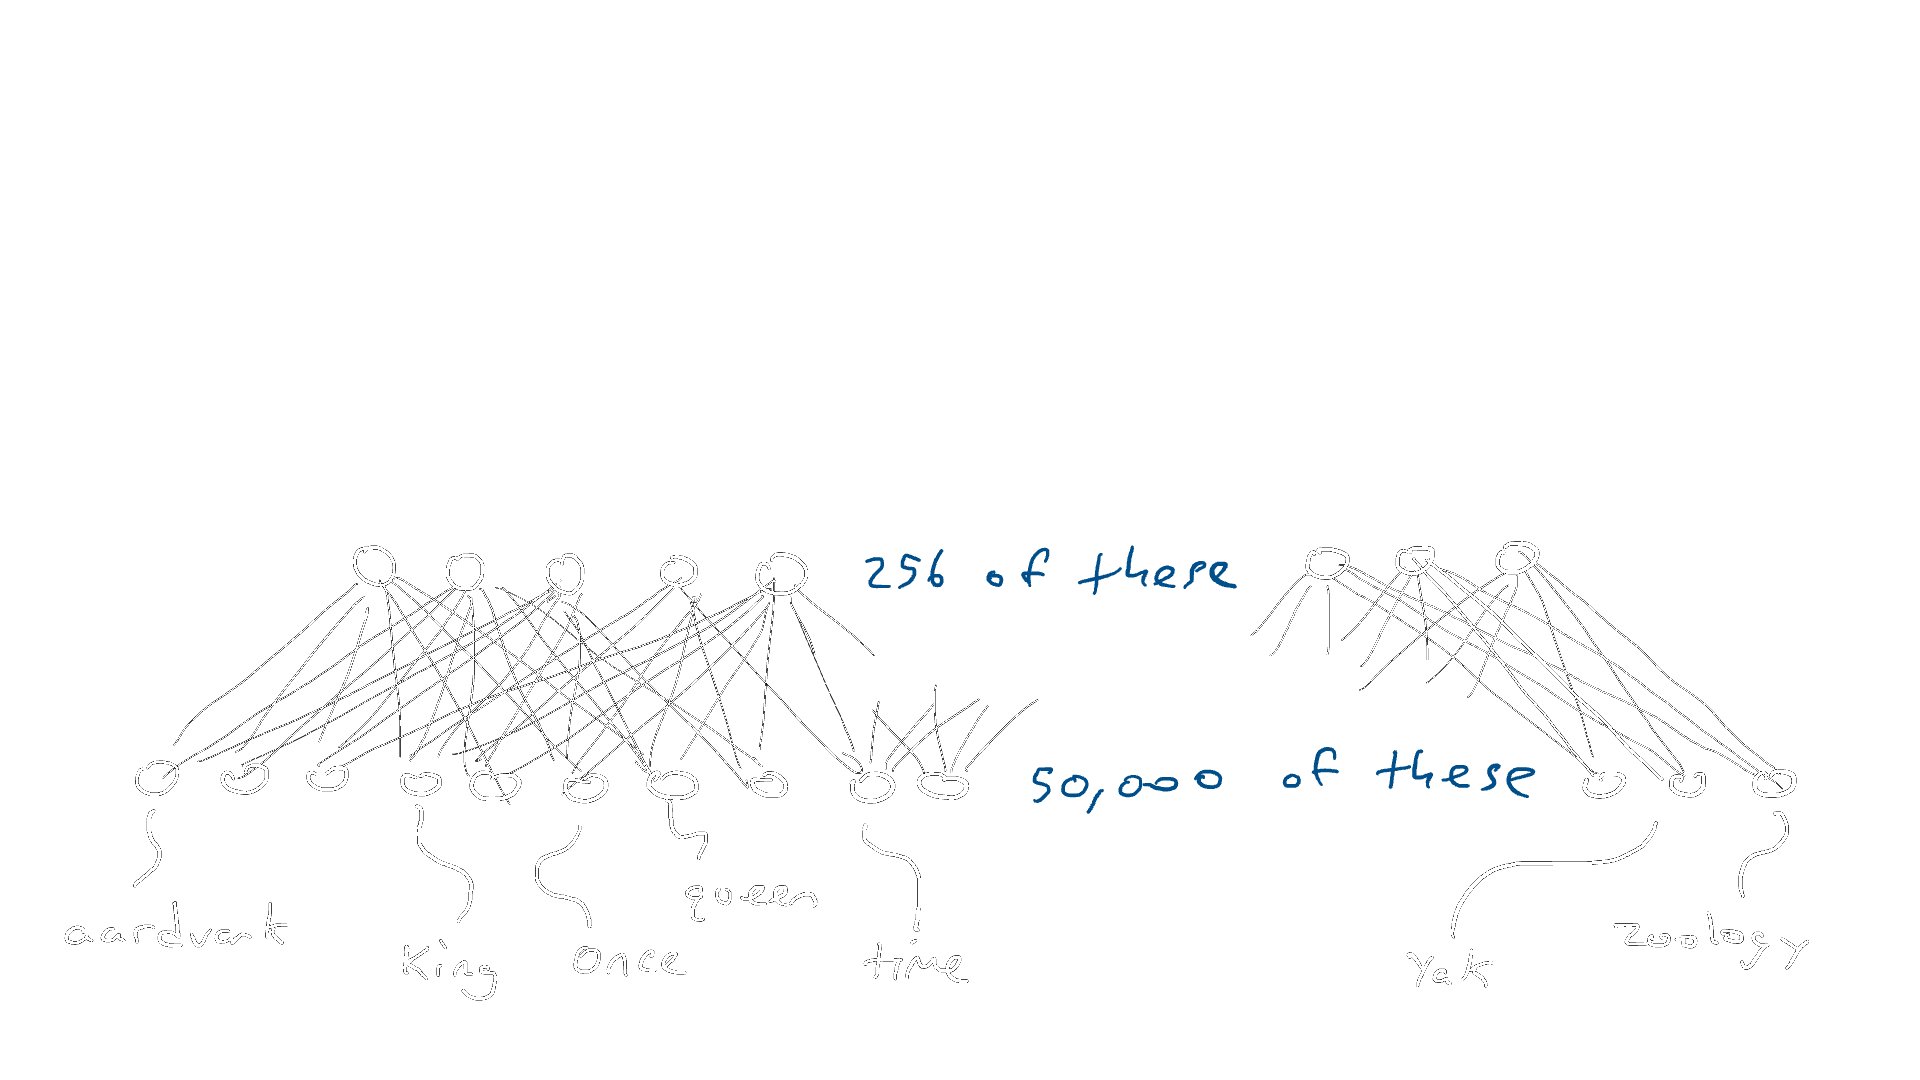 256 of these
50,000 of these
aardvark
King
Once
queen
time
Yak
Zoology